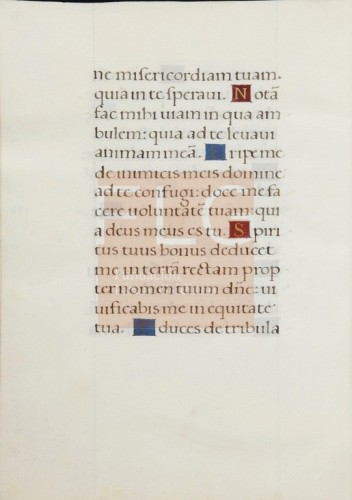 ne misericordiam tuam.
quia in te speraui. Notã
fac mihi uiam in qua am
bulem: quia ad te leuaui
animam meã. Eripe me
de inimicis meis domine
ad te confugi: doce me fa
cere voluntatẽ tuam: qui
a deus meus es tu. Spiri
tus tuus bonus deducet
me in terrã rectam prop
ter nomen tuum dñe: ui
uificabis me in equitate
tua. Educes de tribula
FLG